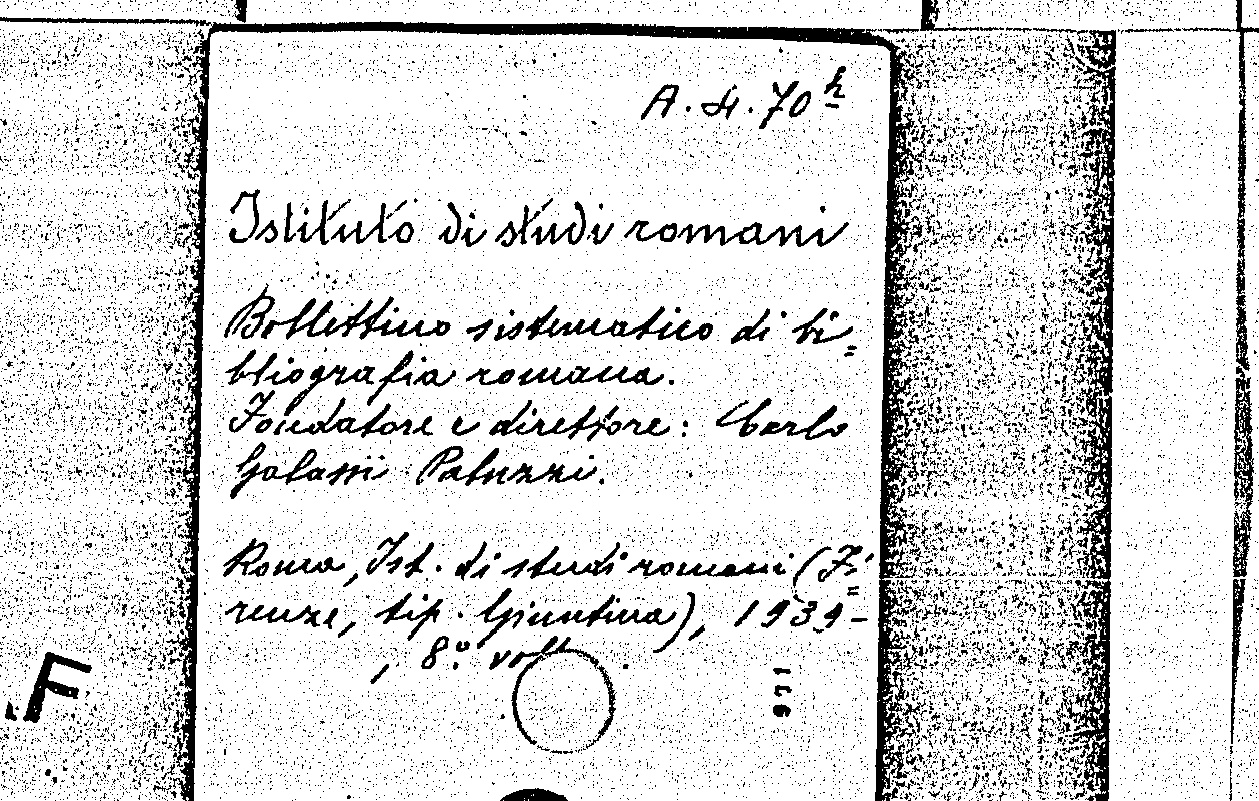 A. 4. 70 h
Istituto di studi romani
Bollettino sistematico di bi=
bliografia romana.
Fondatore e direttore: Carlo
Galassi Paluzzi.
Roma, Ist. di studi romani (Fi=
renze, tip. Giuntina), 1939-
, 8.° voll .
F